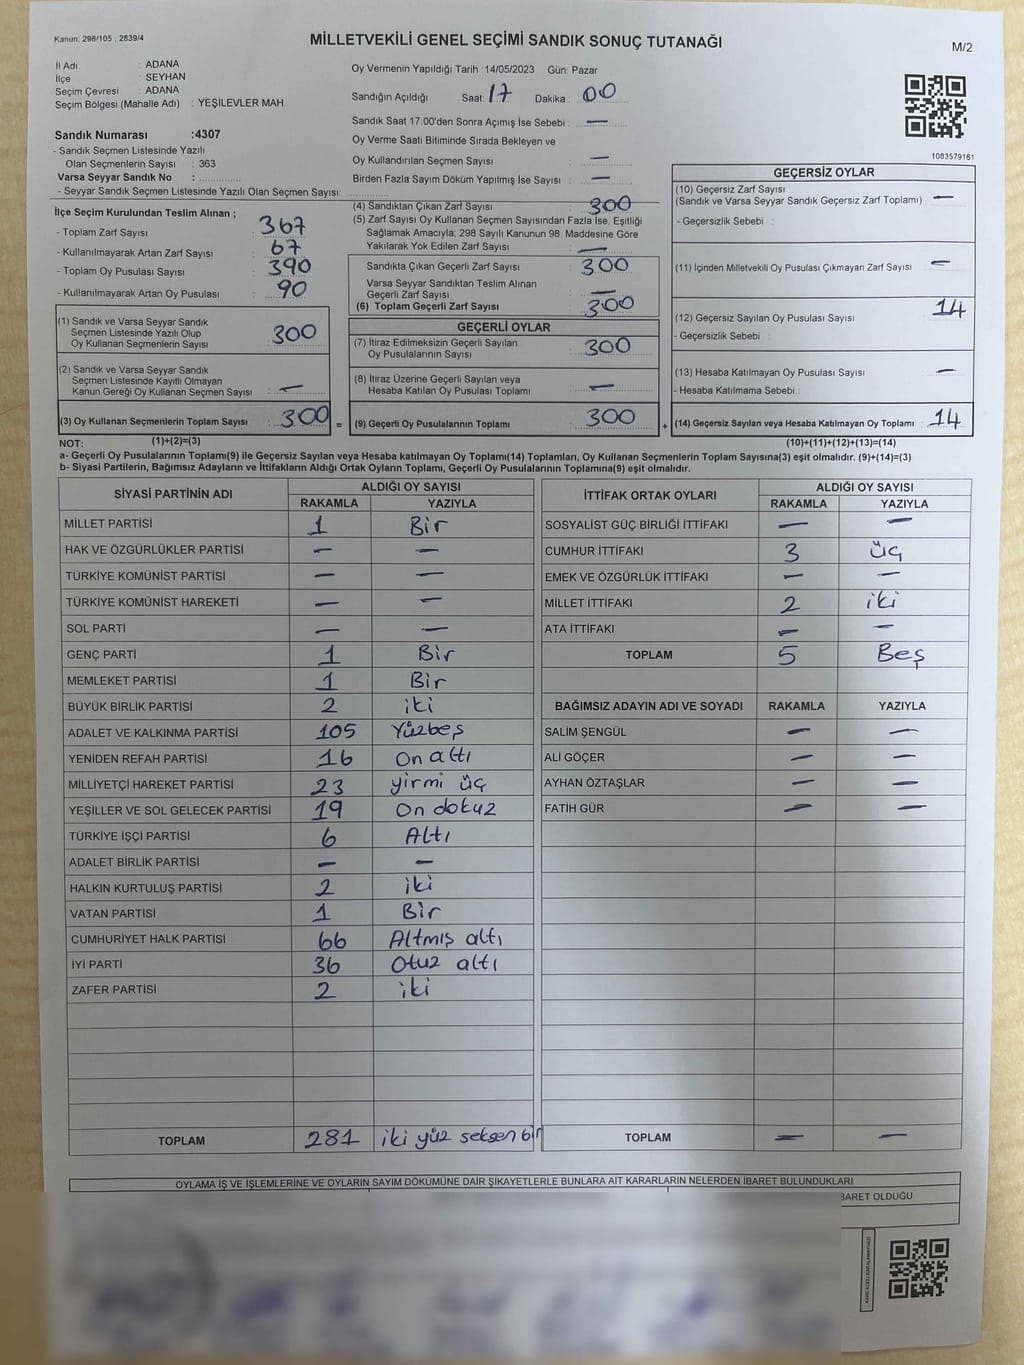 Kanun: 298/105 , 2839/4
MİLLETVEKİLİ GENEL SEÇİMİ SANDIK SONUÇ TUTANAĞI
M/2
İl Adı : ADANA
İlçe : SEYHAN
Seçim Çevresi : ADANA
Seçim Bölgesi (Mahalle Adı) : YEŞİLEVLER MAH.
Sandık Numarası :4307
- Sandık Seçmen Listesinde Yazılı
Olan Seçmenlerin Sayısı : 363
Varsa Seyyar Sandık No :
- Seyyar Sandık Seçmen Listesinde Yazılı Olan Seçmen Sayısı:
Oy Vermenin Yapıldığı Tarih :14/05/2023 Gün: Pazar
Sandığın Açıldığı Saat: 17 Dakika : 00
Sandık Saat 17:00'den Sonra Açımış İse Sebebi : —
Oy Verme Saati Bitiminde Sırada Bekleyen ve
Oy Kullandırılan Seçmen Sayısı : —
Birden Fazla Sayım Döküm Yapılmış İse Sayısı : —
1083579161
İlçe Seçim Kurulundan Teslim Alınan ;
- Toplam Zarf Sayısı : 367
- Kullanılmayarak Artan Zarf Sayısı : 67
- Toplam Oy Pusulası Sayısı : 390
- Kullanılmayarak Artan Oy Pusulası : 90
(1) Sandık ve Varsa Seyyar Sandık
Seçmen Listesinde Yazılı Olup
Oy Kullanan Seçmenlerin Sayısı : 300
(2) Sandık ve Varsa Seyyar Sandık
Seçmen Listesinde Kayıtlı Olmayan
Kanun Gereği Oy Kullanan Seçmen Sayısı : —
(3) Oy Kullanan Seçmenlerin Toplam Sayısı : 300 =
(4) Sandıktan Çıkan Zarf Sayısı : 300
(5) Zarf Sayısı Oy Kullanan Seçmen Sayısından Fazla İse, Eşitliği
Sağlamak Amacıyla; 298 Sayılı Kanunun 98. Maddesine Göre
Yakılarak Yok Edilen Zarf Sayısı : —
Sandıkta Çıkan Geçerli Zarf Sayısı : 300
Varsa Seyyar Sandıktan Teslim Alınan
Geçerli Zarf Sayısı : —
(6) Toplam Geçerli Zarf Sayısı : 300
GEÇERLİ OYLAR
(7) İtiraz Edilmeksizin Geçerli Sayılan
Oy Pusulalarının Sayısı : 300
(8) İtiraz Üzerine Geçerli Sayılan veya
Hesaba Katılan Oy Pusulası Toplamı : —
(9) Geçerli Oy Pusulalarının Toplamı : 300 +
GEÇERSİZ OYLAR
(10) Geçersiz Zarf Sayısı
(Sandık ve Varsa Seyyar Sandık Geçersiz Zarf Toplamı) : —
- Geçersizlik Sebebi :
(11) İçinden Milletvekili Oy Pusulası Çıkmayan Zarf Sayısı : —
(12) Geçersiz Sayılan Oy Pusulası Sayısı : 14
- Geçersizlik Sebebi :
(13) Hesaba Katılmayan Oy Pusulası Sayısı : —
- Hesaba Katılmama Sebebi :
(14) Geçersiz Sayılan veya Hesaba Katılmayan Oy Toplamı : 14
NOT: (1)+(2)=(3) (10)+(11)+(12)+(13)=(14)
a- Geçerli Oy Pusulalarının Toplamı(9) ile Geçersiz Sayılan veya Hesaba katılmayan Oy Toplamı(14) Toplamları, Oy Kullanan Seçmenlerin Toplam Sayısına(3) eşit olmalıdır. (9)+(14)=(3)
b- Siyasi Partilerin, Bağımsız Adayların ve İttifakların Aldığı Ortak Oyların Toplamı, Geçerli Oy Pusulalarının Toplamına(9) eşit olmalıdır.
SİYASİ PARTİNİN ADI ALDIĞI OY SAYISI
RAKAMLA YAZIYLA
MİLLET PARTİSİ 1 Bir
HAK VE ÖZGÜRLÜKLER PARTİSİ — —
TÜRKİYE KOMÜNİST PARTİSİ — —
TÜRKİYE KOMÜNİST HAREKETİ — —
SOL PARTİ — —
GENÇ PARTİ 1 Bir
MEMLEKET PARTİSİ 1 Bir
BÜYÜK BİRLİK PARTİSİ 2 iki
ADALET VE KALKINMA PARTİSİ 105 Yüzbeş
YENİDEN REFAH PARTİSİ 16 On altı
MİLLİYETÇİ HAREKET PARTİSİ 23 yirmi üç
YEŞİLLER VE SOL GELECEK PARTİSİ 19 On dokuz
TÜRKİYE İŞÇİ PARTİSİ 6 Altı
ADALET BİRLİK PARTİSİ — —
HALKIN KURTULUŞ PARTİSİ 2 iki
VATAN PARTİSİ 1 Bir
CUMHURİYET HALK PARTİSİ 66 Altmış altı
İYİ PARTİ 36 Otuz altı
ZAFER PARTİSİ 2 iki
TOPLAM 281 iki yüz seksen bir
İTTİFAK ORTAK OYLARI ALDIĞI OY SAYISI
RAKAMLA YAZIYLA
SOSYALİST GÜÇ BİRLİĞİ İTTİFAKI — —
CUMHUR İTTİFAKI 3 üç
EMEK VE ÖZGÜRLÜK İTTİFAKI — —
MİLLET İTTİFAKI 2 iki
ATA İTTİFAKI — —
TOPLAM 5 Beş
BAĞIMSIZ ADAYIN ADI VE SOYADI RAKAMLA YAZIYLA
SALİM ŞENGÜL — —
ALİ GÖÇER — —
AYHAN ÖZTAŞLAR — —
FATİH GÜR — —
TOPLAM — —
OYLAMA İŞ VE İŞLEMLERİNE VE OYLARIN SAYIM DÖKÜMÜNE DAİR ŞİKAYETLERLE BUNLARA AİT KARARLARIN NELERDEN İBARET BULUNDUKLARI
BARET OLDUĞU